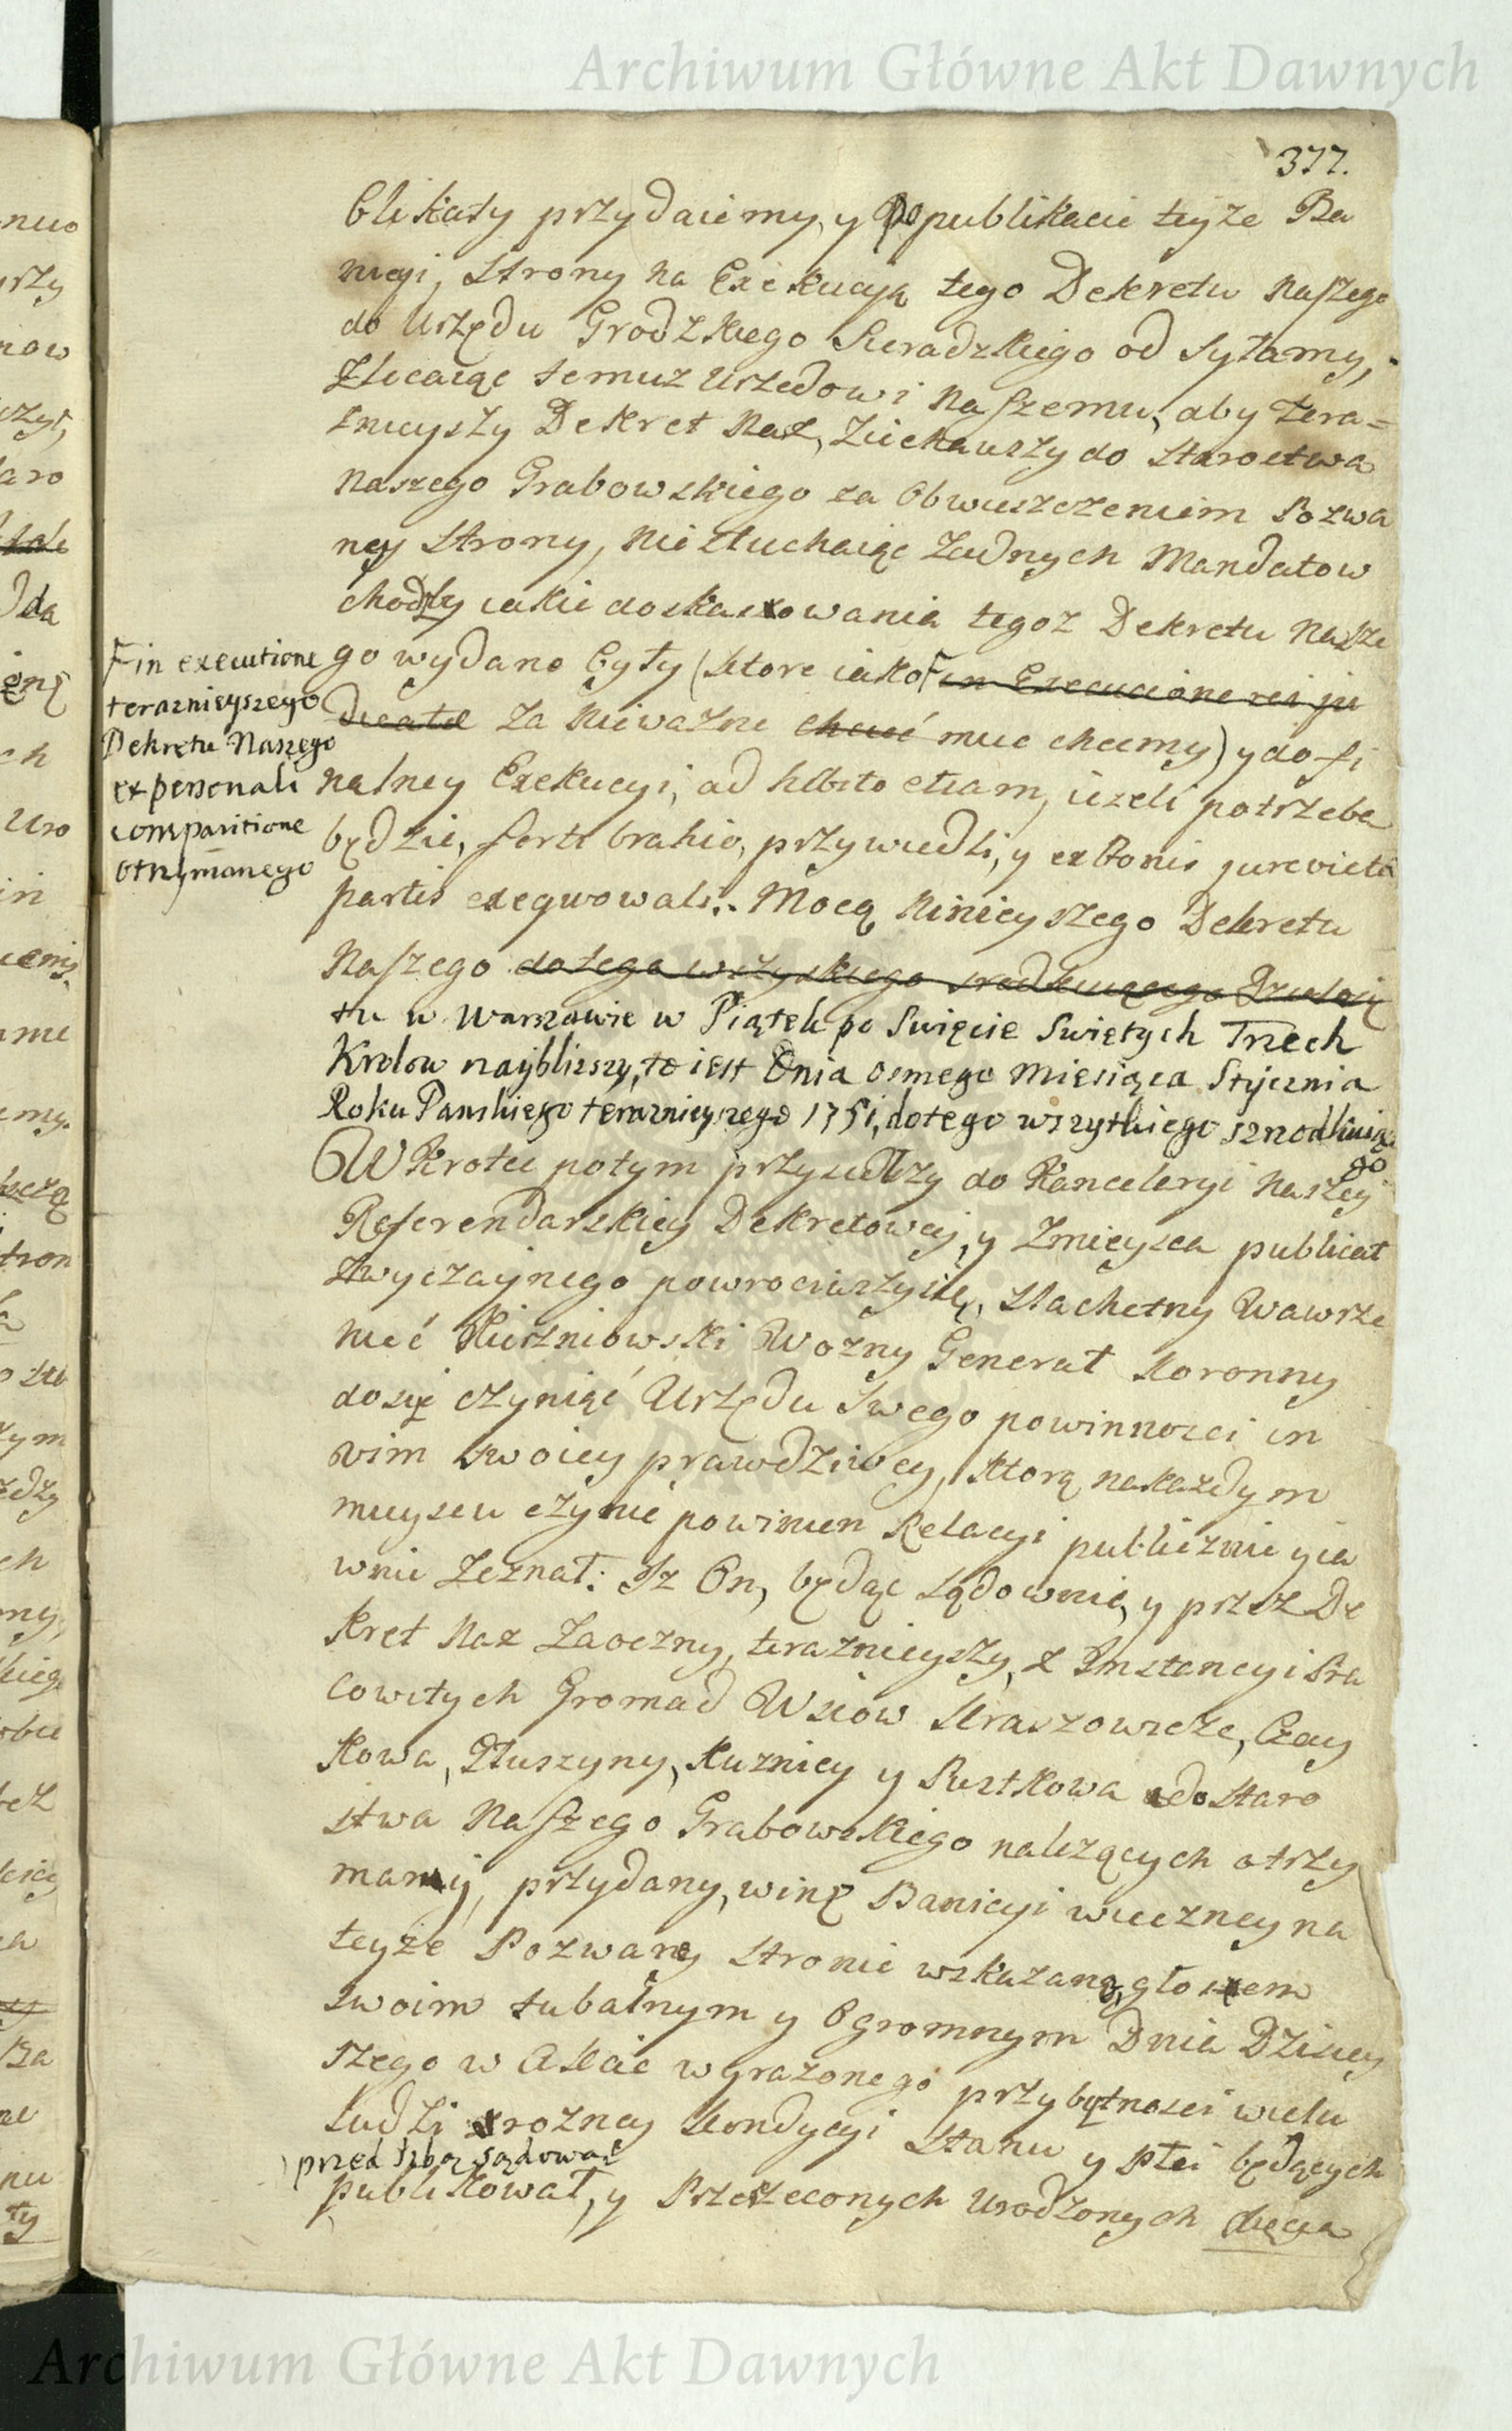 Archiwum Główne Akt Dawnych
377.
blikaty przydaiemy, y Po publikacie teyże Ba
nicyi, Strony na Exekucyą tego Dekretu naszego
do Urzędu Grodzkiego Sieradzkiego od Syłamy,
Zlicaiąc temuz Urzędowi naszemu, aby tera=
znieyszy Dekret Nasz, Ziechawszy do Staroctwa
naszego Grabowskiego za Obwieszczeniem Pozwa
ney Strony, nie słuchaiąc Zadnych Mandatow
chodzby iakie do skassowania tegoz Dekretu Nasze
go wydano były (ktore iako F in Execucione rei ju
dicatæ za nieważne chcieć miec chcemy) y do fi
nalney Exekucyi, ad hibito etiam, ieżeli potrzeba
będzie, forti brahio, przywiedli, y ex bonis jurevictæ
partis exeqwowali. Mocą ninieyszego Dekretu
Naszego do tego wszyskiego srodkuiącego Działo się
F in executione
teraznieyszego
Dekretu Naszego
ex personali
comparitione
otrzymanego
tu w Warszawie w Piątek po Swięcie Swiętych Trzech
Krolow najbliższy, to iest Dnia osmego Miesiąca Stycznia
Roku Panskiego teraznieyszego 1751, do tego wszytkiego szrodkuiące
go
W Krotce potym przyszedłzy do Kancelaryi Naszey
Referendarskiey Dekretowey, y Zmieysca publicat
zwyczaynego powrociwszy się, Slachetny Wawrze
niec Wiszniowski Wozny Generał Koronny
dosyć czyniąć Urzędu Swego powinnosci in
vim swoiey prawdziwey, Ktorą na kazdym
mieyscu czynić powinien Relacyi publicznie y ia
wnie Zeznał: Iz On, będąc sądownie, y przez De
kret Nasz Zaoczny, teraznieyszy, z Instancyi Pra
cowitych Gromad Wsiow Kraszowicze, Czay
kowa, Głuszyny, Kuznicy y Pustkowa do Staro
stwa Naszego Grabowskiego nalezących otrzy
many, przydany, winę Banicyi wieczney na
teyże Pozwaney Stronie wskazaną, głosem
swoim tubalnym y Ogromnym Dnia Dzisiey
szego w Akcie wyrazonego przy bytności wielu
ludzi rozney Kondycyi Stanu y płci będących
przed Izbą sądową
publikował, y Przerzeconych Urodzonych
Archiwum Główne Akt Dawnych